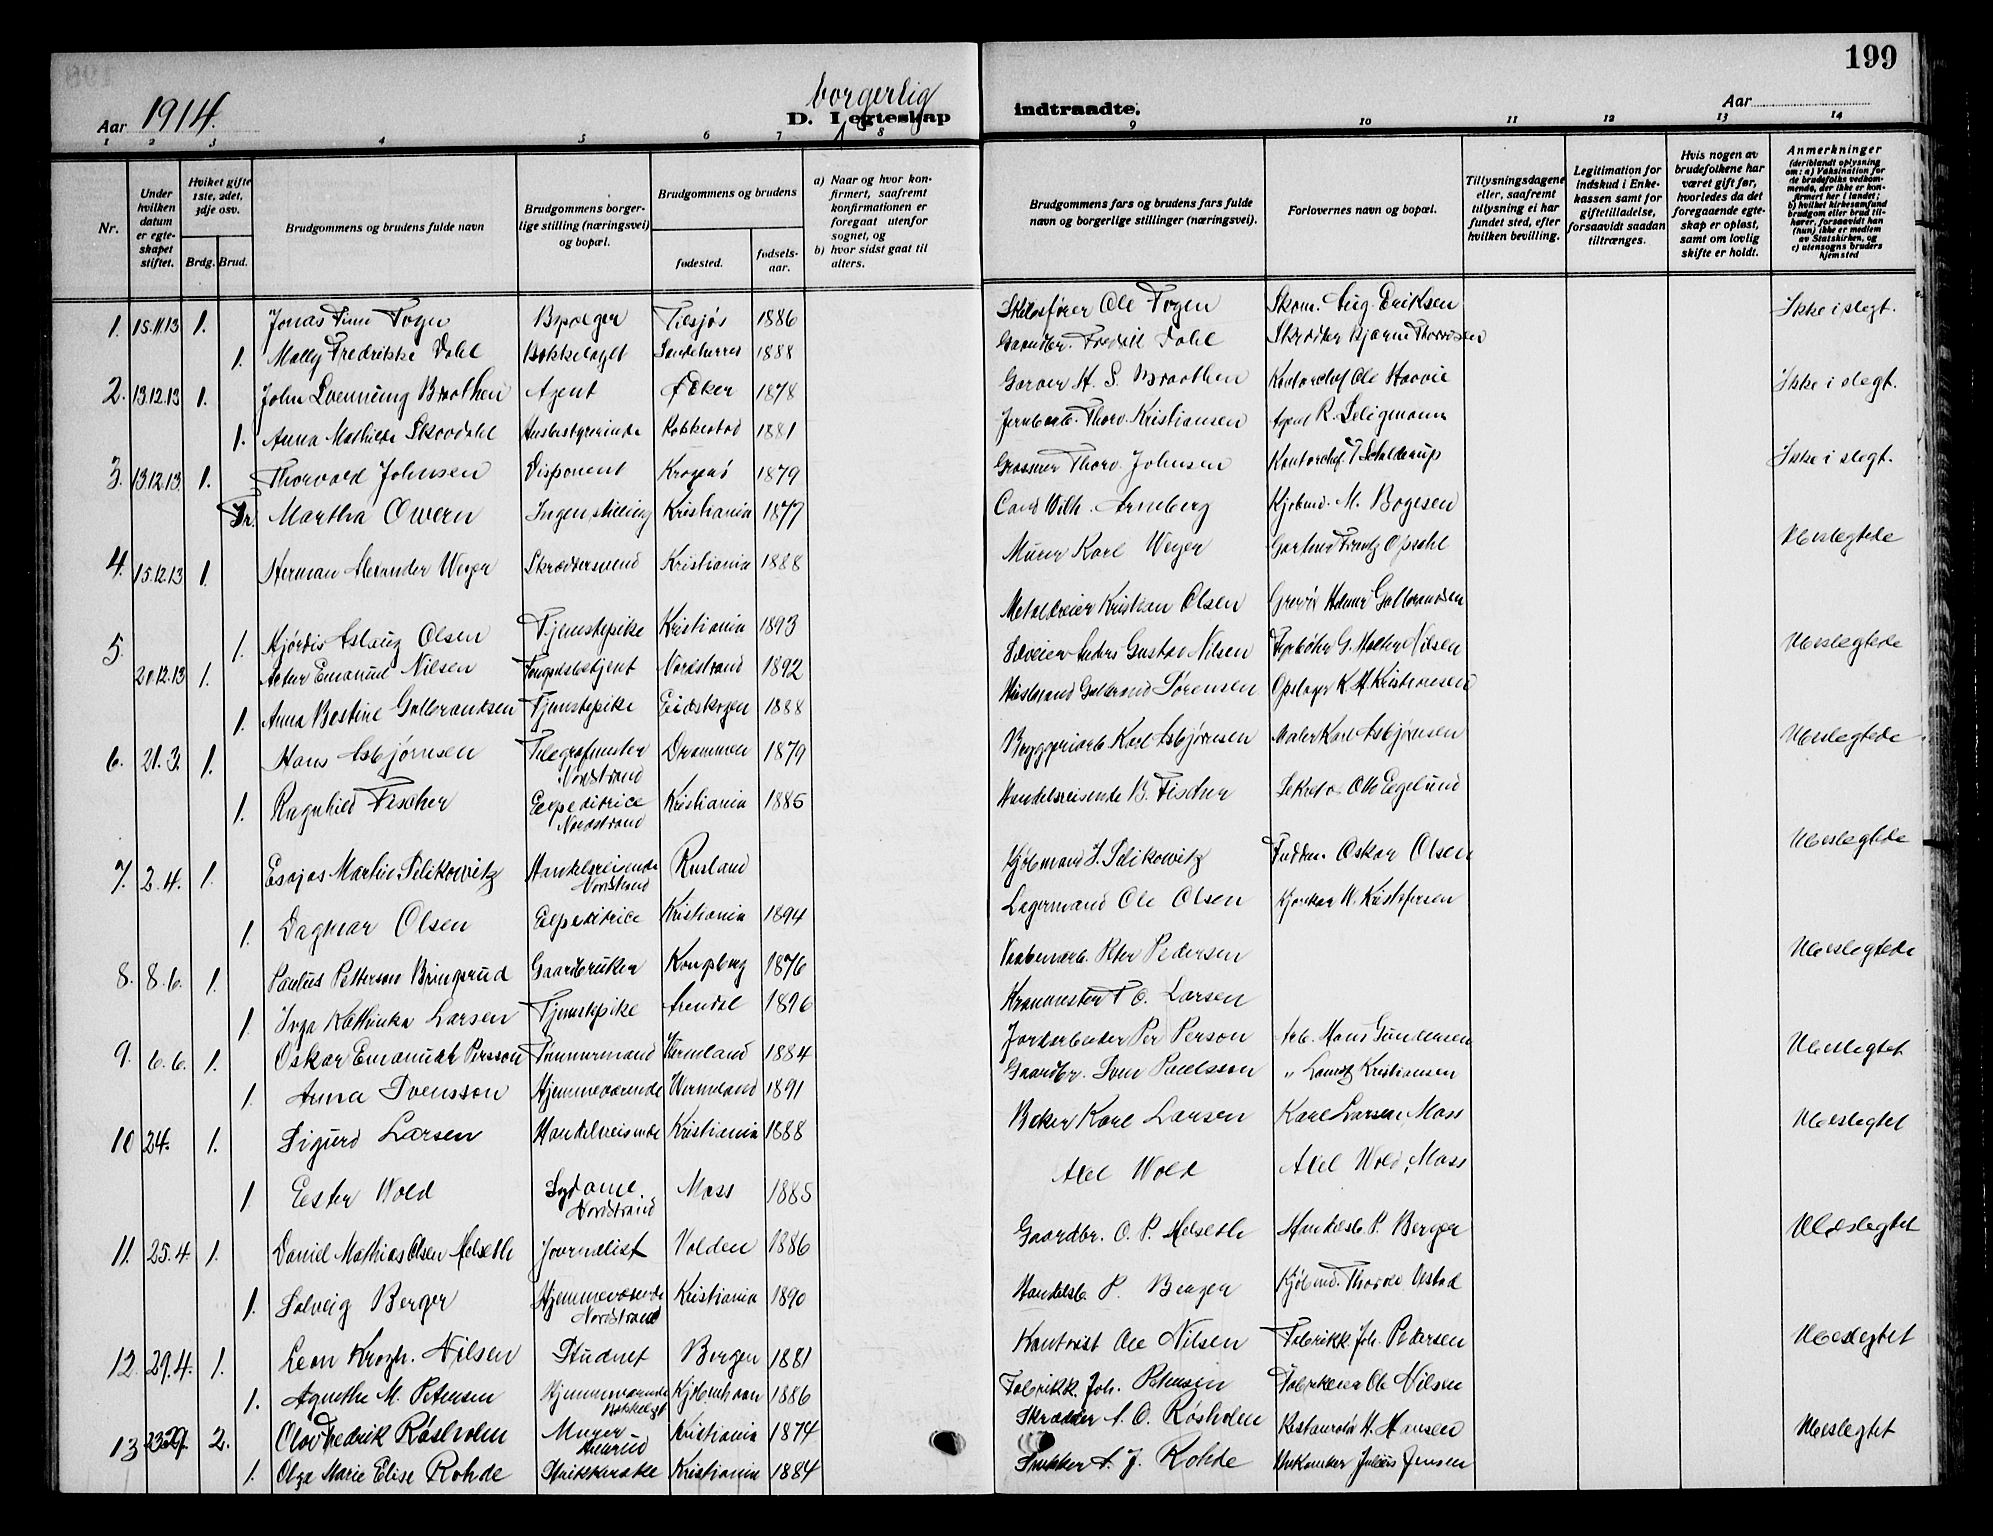 199
borgerlig
Aar 1914.
D. I egteskap indtraadte.
Aar
1 2 3 4 5 6 7 8 9 10 11 12 13 14
Nr.
Under hvilken datum er egteskapet stiftet.
Hvilket gifte 1ste, 2det, 3dje osv.
Brdg. Brud.
Brudgommens og brudens fulde navn
Brudgommens borgerlige stilling (næringsvei) og bopæl.
Brudgommens og brudens
fødested.
fødselsaar.
a) Naar og hvor konfirmert, saafremt konfirmationen er foregaat utenfor sognet, og
b) hvor sidst gaat til alters.
Brudgommens fars og brudens fars fulde navn og borgerlige stillinger (næringsvei).
Forlovernes navn og bopæl.
Tillysningsdagene eller, saafremt tillysning ei har fundet sted, efter hvilken bevilling.
Legitimation for indskud i Enkekassen samt for giftetilladelse, forsaavidt saadan tiltrænges.
Hvis nogen av brudefolkene har været gift før, hvorledes da det foregaaende egteskap er opløst, samt om lovlig skifte er holdt.
Anmerkninger (deriblandt oplysning om: a) Vaksination for de brudefolks vedkommende, der ikke er konfirmert her i landet; b) hvilket kirkesamfund brudgom eller brud tilhører, forsaavidt han (hun) ikke er medlem av Statskirken, og c) utensogns bruders hjemsted
1. 15.11.13 1. Jonas Finn Fogn 1886 Ole Fogen Skom. Aug. Eriksen Ikke i slegt.
1. Molly Fredrikke Dahl Bækkelaget 1888 Gaardbr. Fredrik Dahl Skrædder Bjarne
2. 13.12.13 1. John Braathen Agent Ø Eker 1878 Garver H. S. Braathen Kontorchef Ole Ikke i slegt.
1. Anna Mathilde Skovdahl Husbestyrerinde Rakkestad 1881 Jernbarb. Thorv. Kristiansen Agent R. Seligmann
3. 13.12.13. 1. Thorvald Johnsen Disponent Kragerø 1879 Thorv. Johnsen Kontorchef T. Schjelderup Ikke i slegt.
Fr. Martha Owern Ingen stilling Kristiania 1877 Wilh. Arneberg Kjøbmd. M. Bogesen
4. 15.12.13 1. Herman Alexander Weyer Skræddersvend Kristiania 1888 Murer Karl Weyer Gartner Frantz Opsahl Ubeslegtede
1. Hjørdis Aslaug Olsen Tjenestepike Kristiania 1893 Kristian Olsen Gulbrandsen
5. 20.12.13 1. Artur Emanuel Nilsen Nordstrand 1892 Anders Gustav Nilsen Nilsen Ubeslegtede
1. Anna Bestine Gulbrandsen Tjenestepike Eidskogen 1888 Husbrand Gulbrand Sørensen K. H. Kristiansen
6. 21.3. 1. Hans Asbjørnsen Telegrafmester Nordstrand Drammen 1879 Bryggeriarb. Karl Asbjørnsen Maler Karl Asbjørnsen Ubeslegtede
1. Ragnhild Fischer Expeditrice Nordstrand Kristiania 1885 Handelsreisende B. Fischer Otto Egelund
7. 2.4. 1. Esajas Martin Selikowitz Handelsreisende Nordstrand Rusland Kjøbmand I. Selikowitz Oskar Olsen Ubeslegtede
1. Dagmar Olsen Expeditrice Kristiania 1894 Lagermand Ole Olsen Kristofersen
8. 8.6. 1. Paulus Petterson Bringsrud Gaardbruker Kongsberg 1876 Vaabenarb. Peter Pedersen Ubeslegtede
1. Inga Kathinka Larsen Tjenestepike Arendal 1896 Kranmester T. O. Larsen
9. 6.6. 1. Oskar Emanuel Persson Tømmermand Vermland 1884 Jordarbeider Per Person Arb. Hans Gundersen Ubeslegtet
1. Anna Svensson Hjemmeværende Vermeland 1891 Gaardbr. Sven Paulsson „ Kristiansen
10 24. 1. Sigurd Larsen Handelsreisende Kristiania 1888 Beker Karl Larsen Karl Larsen, Moss Ubeslegtet
1 Eester Wold Sydame. Nordstrand Moss 1885 Axel Wold Axel Wold, Moss
11. 25.4. 1. Daniel Mathias Olsen Helseth Journalist Volden 1886 Gaardbr. O. P. Helseth Handelsb. P. Berger Ubeslegtet
1. Solveig Berger Hjemmeværende Nordstrand Kristiania 1890 Handelsb. P. Berger Kjøbmd. Thorvald Ustad
12. 29.4. 1. Leon Krogh. Nilsen Student Bergen 1881 Ole Nilsen Fabrikk. Joh. Petersen Ubeslegtet
1. Agnethe M. Petersen Hjemmeværende Bækkelagt Kjøbenhavn 1886 Fabrikk. Joh. Petersen Ole Nilsen
13 2. Olav Fredrik Røsholm Murer Kristiania 1874 Skrædder A. O. Røsholm Restauratør H. Hansen Ubeslegtet
1. Olga Marie Elise Rohde Strikkerske Kristiania 1884 Snekker A. J. Rohde Julius Jensen